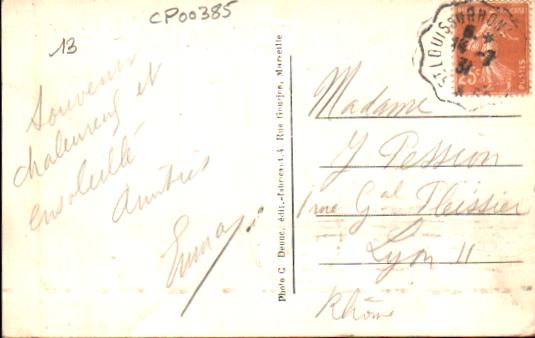 CP00385
13
Souvenir
chaleureux et
ensoleillé
Amitiés
Photo C. Denuc, édit.-fabricant, 4 Rue Goudes, Marseille
ST LOUIS S RHONE
31
25c
POSTES
Madame
J Pession
1 rue Gal Pleissier
Lyon 11
Rhône